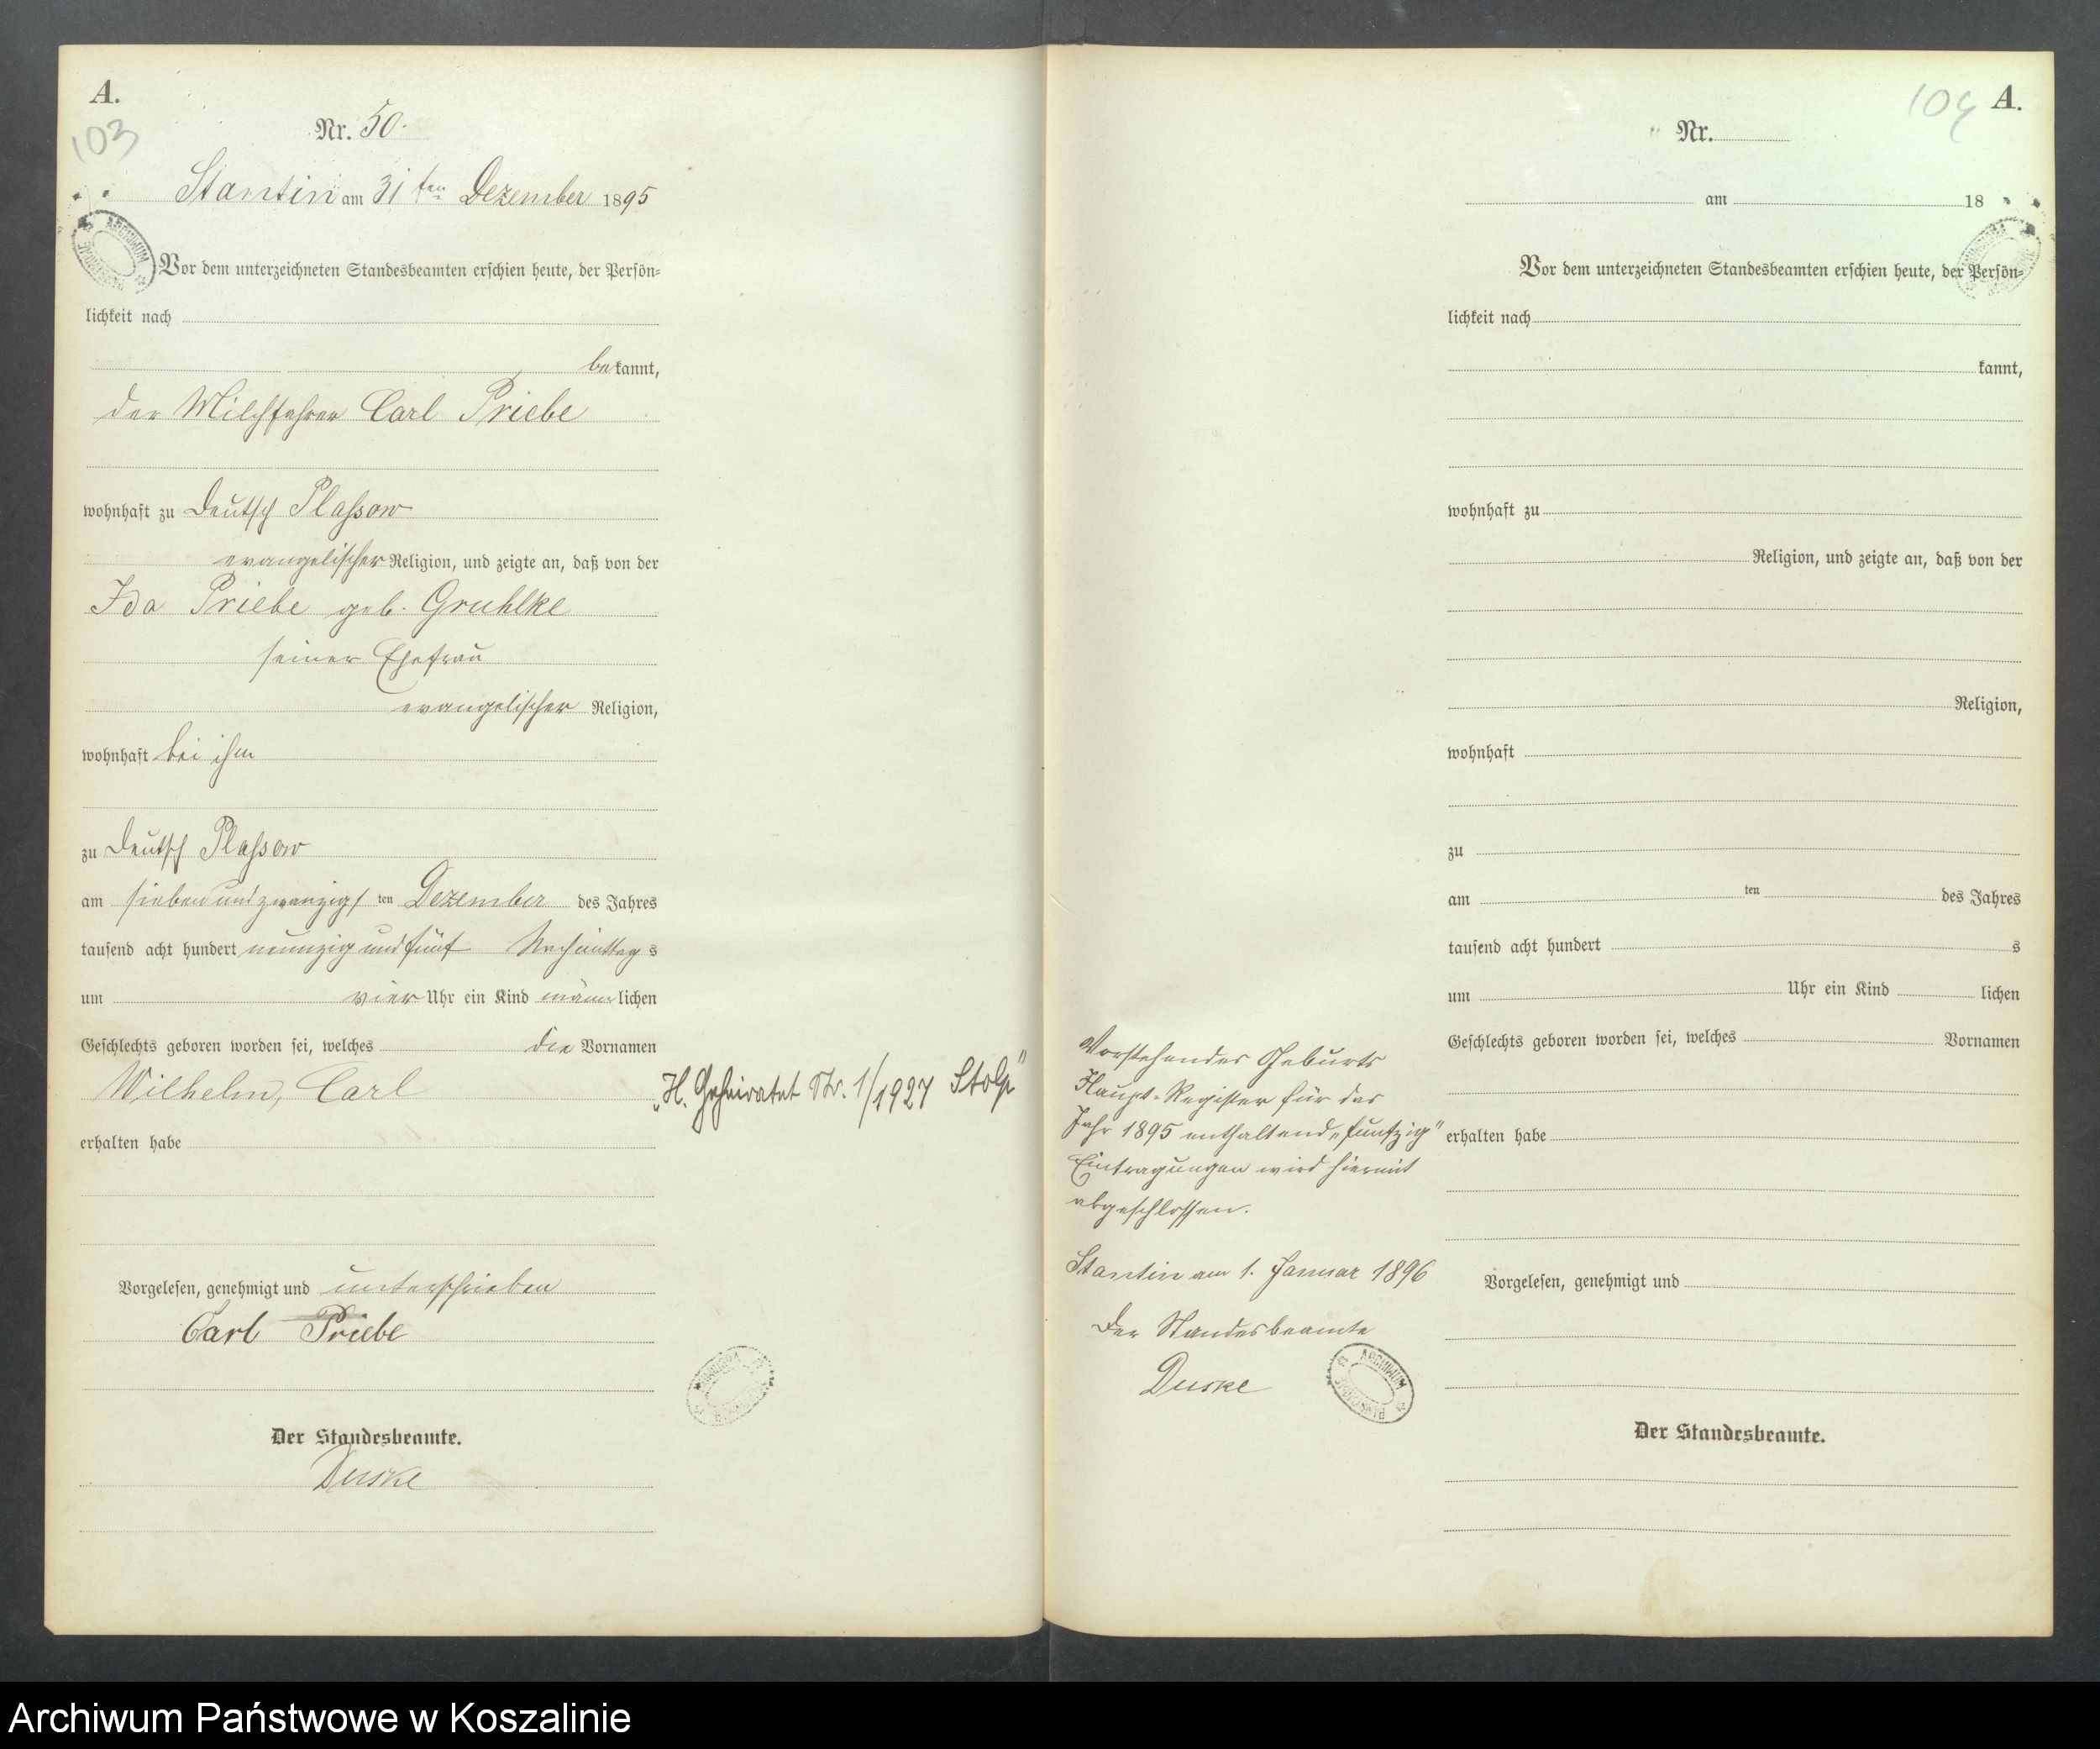 A.
103
Nr. 50.
Stantin am 31ten Dezember 1895
Vor dem unterzeichneten Standesbeamten erschien heute, der Persön-
lichkeit nach
bekannt,
der Milchfahrer Carl Priebe
wohnhaft zu Deutsch Plassow
evangelischer Religion, und zeigte an, daß von der
Ida Priebe geb. Gruhlke
seiner Ehefrau
evangelischer Religion,
wohnhaft bei ihm
zu Deutsch Plassow
am siebenundzwanzigsten Dezember des Jahres
tausend acht hundert neunzig und fünf Nachmittags
um vier Uhr ein Kind männlichen
Geschlechts geboren worden sei, welches die Vornamen
Wilhelm, Carl
„H. Geheiratet Nr. 1/1927 Stolp"
erhalten habe
Vorgelesen, genehmigt und unterschrieben
Carl Priebe
Der Standesbeamte.
Duske
104 A.
Nr.
am 18
Vor dem unterzeichneten Standesbeamten erschien heute, der Persön-
lichkeit nach
kannt,
wohnhaft zu
Religion, und zeigte an, daß von der
Religion,
wohnhaft
zu
am ten des Jahres
tausend acht hundert s
um Uhr ein Kind lichen
Geschlechts geboren worden sei, welches Vornamen
erhalten habe
Vorgelesen, genehmigt und
Der Standesbeamte.
Vorstehendes Geburts
Haupt-Register für das
Jahr 1895 enthaltend „funfzig"
Eintragungen wird hiermit
abgeschlossen.
Stantin am 1. Januar 1896
Der Standesbeamte
Duske
ARCHIWUM
Archiwum Państwowe w Koszalinie